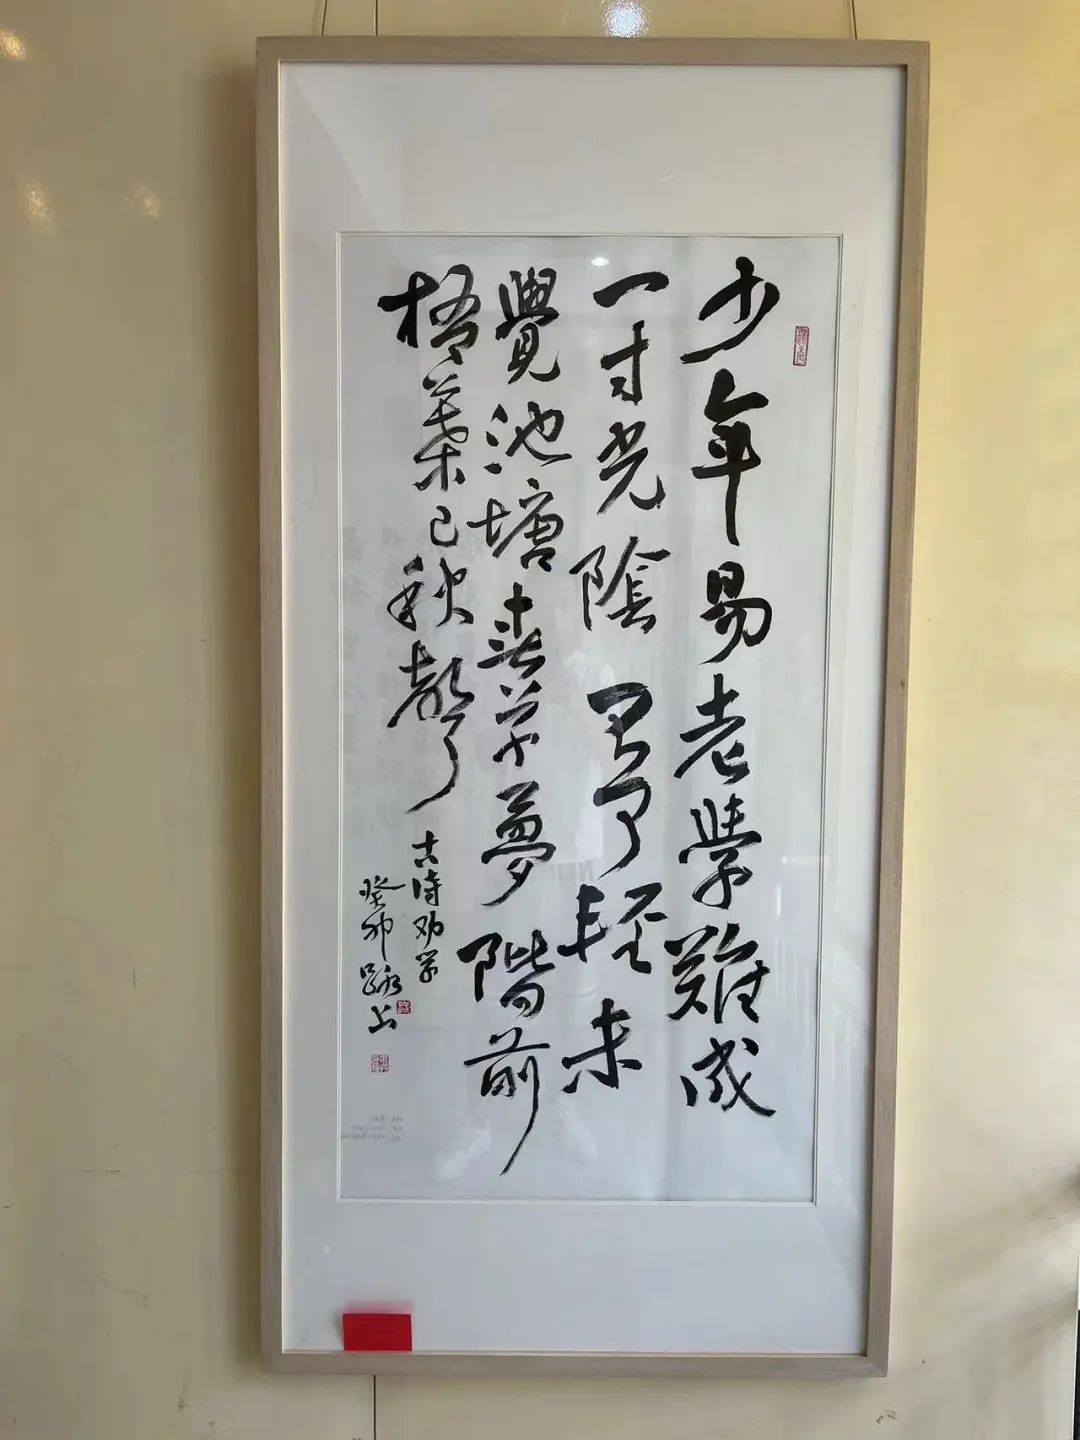 少年易老學難成
一寸光陰不可輕未
覺池塘春草夢階前
梧葉已秋聲
古诗劝学
癸卯